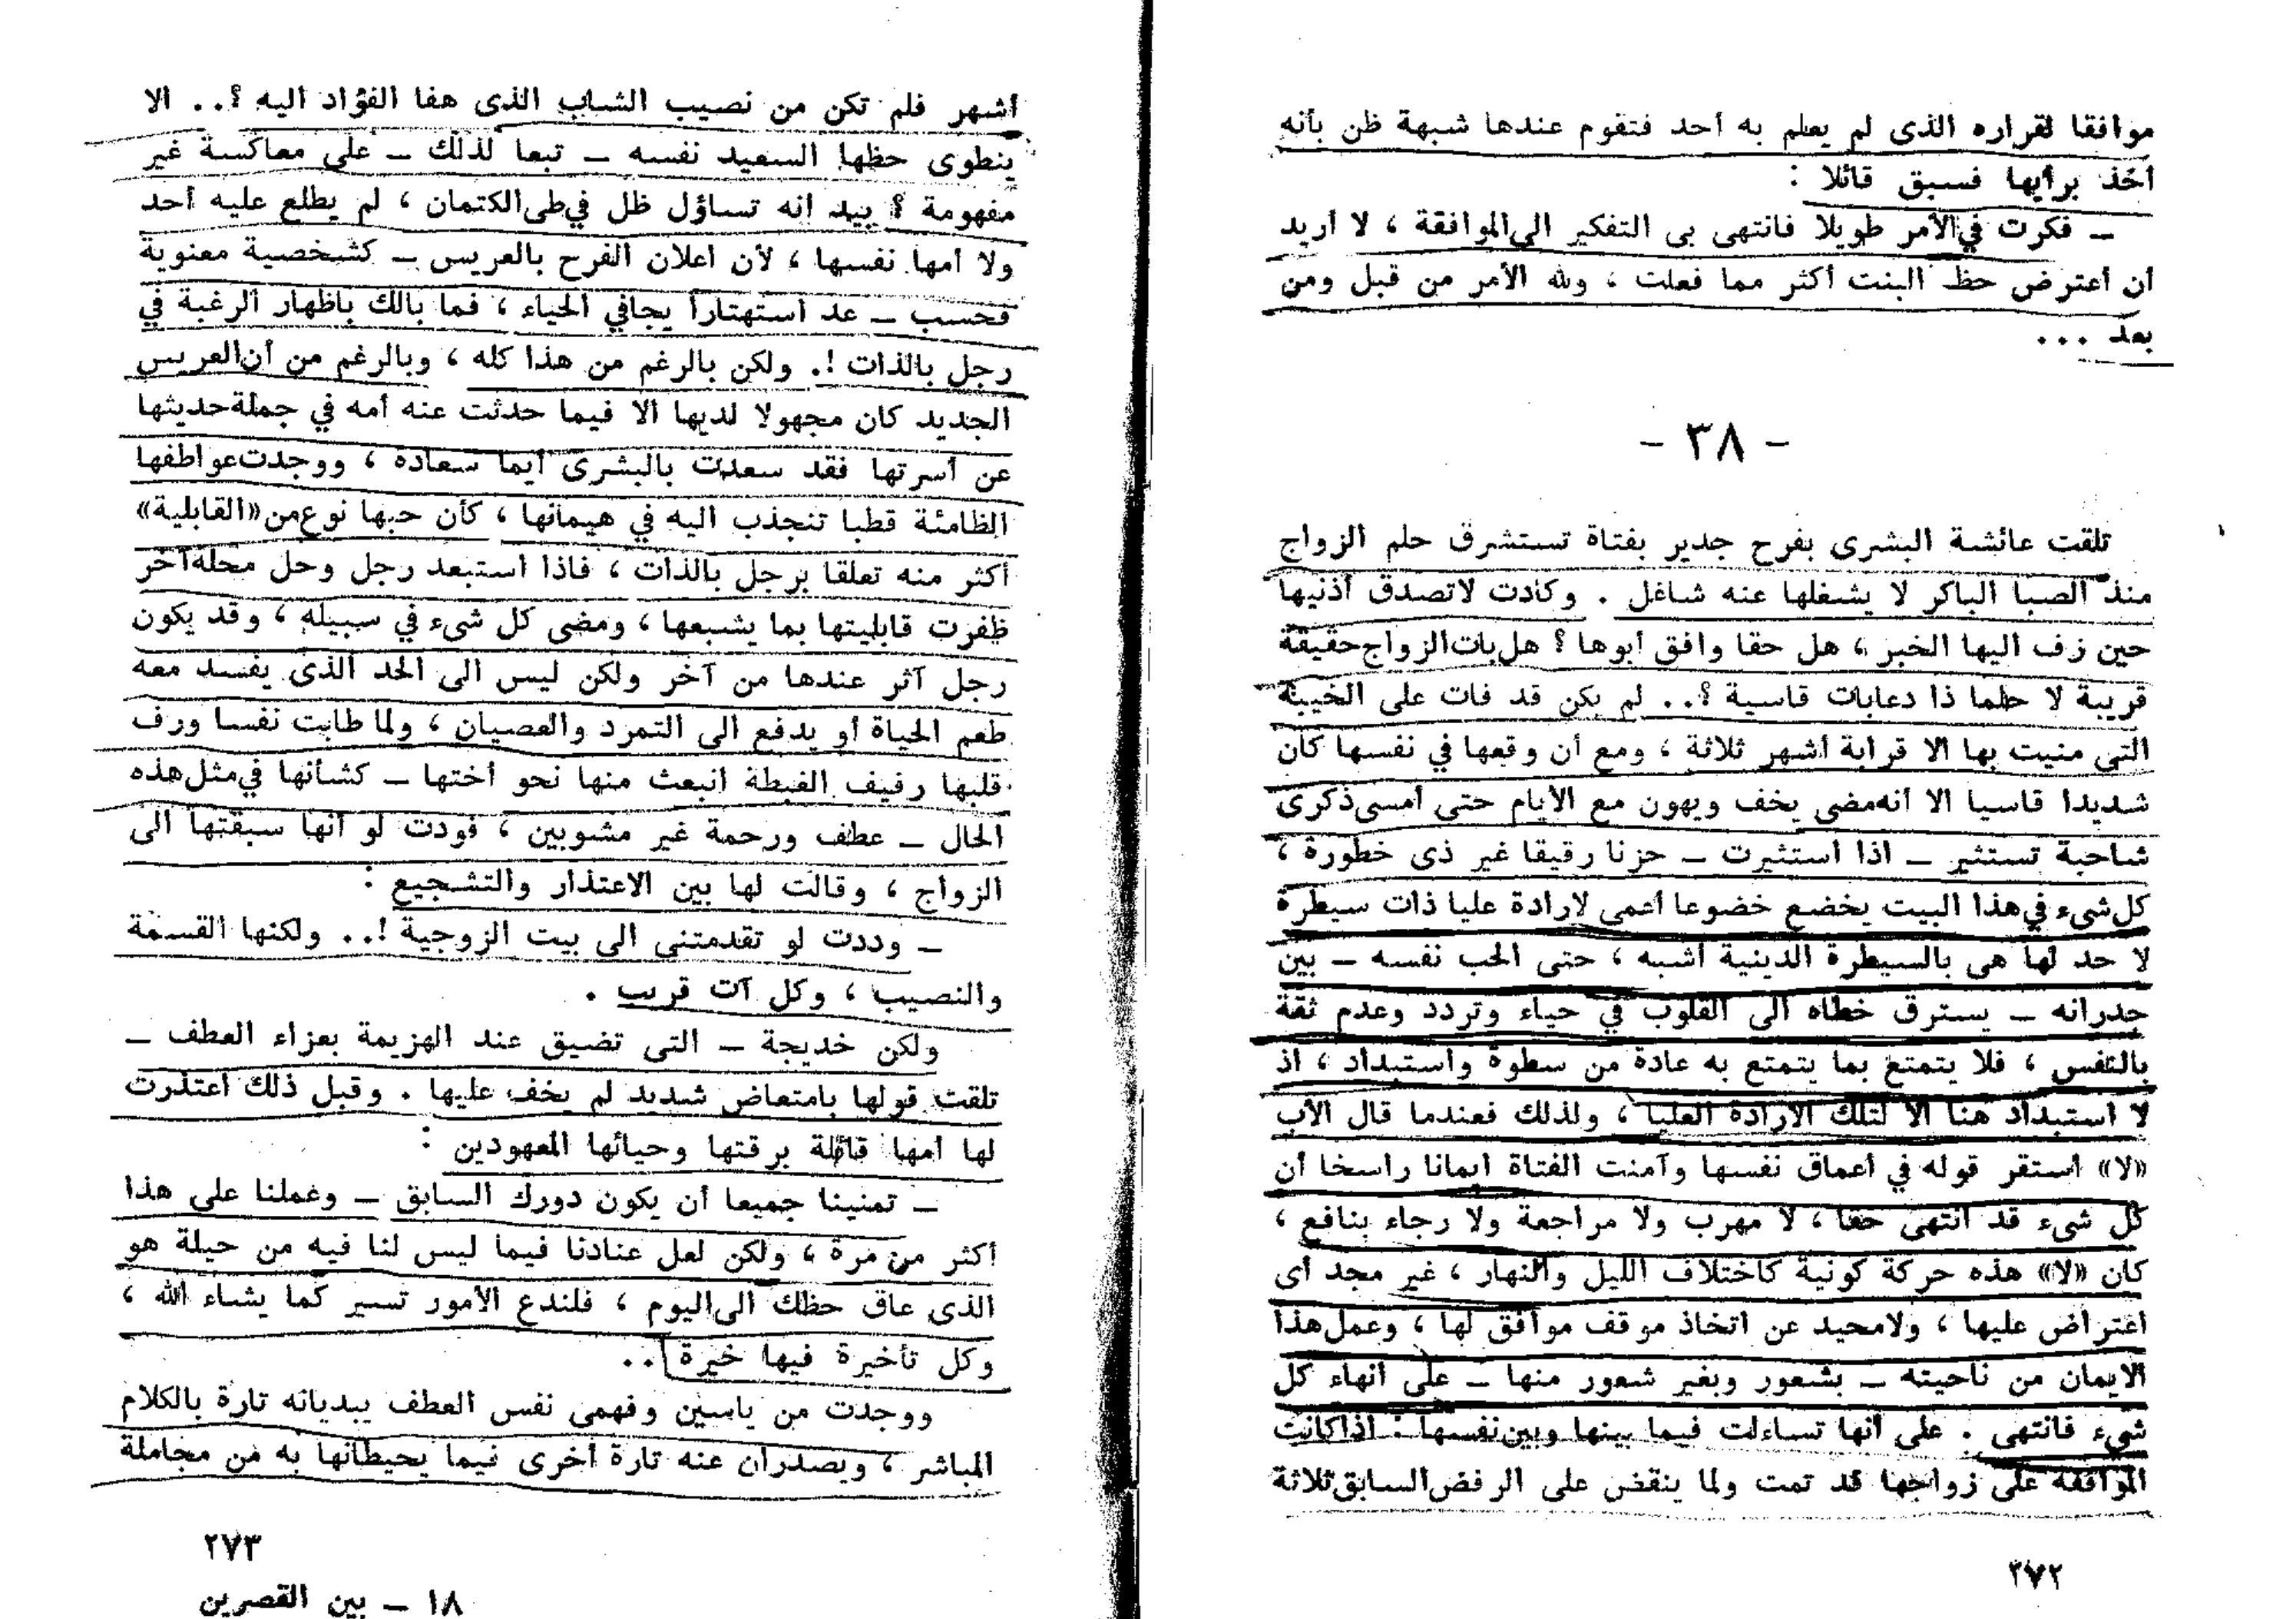 موافقا لقراره الذى لم يعلم به أحد فتقوم عندها شبهة ظن بأنه
أخذ برأيها فسبق قائلا :
ـ فكرت في الأمر طويلا فانتهى بى التفكير الى الموافقة ، لا أريد
أن أعترض حظ البنت أكثر مما فعلت ، ولله الأمر من قبل ومن
بعد ...
- ٣٨ -
تلقت عائشة البشرى بفرح جدير بفتاة تستشرق حلم الزواج
منذ الصبا الباكر لا يشغلها عنه شاغل . وكادت لا تصدق أذنيها
حين زف اليها الخبر ، هل حقا وافق أبوها ؟ هل بات الزواج حقيقة
قريبة لا حلما ذا دعابات قاسية ؟.. لم يكن قد فات على الخيبة
التى منيت بها الا قرابة أشهر ثلاثة ، ومع أن وقعها في نفسها كان
شديدا قاسيا الا أنه مضى يخف ويهون مع الأيام حتى أمسى ذكرى
شاحبة تستثير ـ اذا استثيرت ـ حزنا رقيقا غير ذى خطورة ،
كل شىء في هذا البيت يخضع خضوعا أعمى لارادة عليا ذات سيطرة
لا حد لها هى بالسيطرة الدينية أشبه ، حتى الحب نفسه ـ بين
جدرانه ـ يسترق خطاه الى القلوب في حياء وتردد وعدم ثقة
بالنفس ، فلا يتمتع بما يتمتع به عادة من سطوة واستبداد ، اذ
لا استبداد هنا الا لتلك الارادة العليا ، ولذلك فعندما قال الأب
«لا» استقر قوله في أعماق نفسها وآمنت الفتاة ايمانا راسخا أن
كل شىء قد انتهى حقا ، لا مهرب ولا مراجعة ولا رجاء بنافع ،
كان «لا» هذه حركة كونية كاختلاف الليل والنهار ، غير مجد أى
اعتراض عليها ، ولا محيد عن اتخاذ موقف موافق لها ، وعمل هذا
الايمان من ناحيته ـ بشعور وبغير شعور منها ـ على انهاء كل
شىء فانتهى . على أنها تساءلت فيما بينها وبين نفسها : اذا كانت
الموافقة على زواجها قد تمت ولما ينقض على الرفض السابق ثلاثة
٢٧٢
أشهر فلم تكن من نصيب الشاب الذى هفا الفؤاد اليه ؟.. الا
ينطوى حظها السعيد نفسه ـ تبعا لذلك ـ على معاكسة غير
مفهومة ؟ بيد انه تساؤل ظل في طى الكتمان ، لم يطلع عليه أحد
ولا أمها نفسها ، لأن اعلان الفرح بالعريس ـ كشخصية معنوية
فحسب ـ عد استهتارا يجافي الحياء ، فما بالك باظهار الرغبة في
رجل بالذات !. ولكن بالرغم من هذا كله ، وبالرغم من أن العريس
الجديد كان مجهولا لديها الا فيما حدثت عنه أمه في جملة حديثها
عن أسرتها فقد سعدت بالبشرى أيما سعادة ، ووجدت عواطفها
الظامئة قطبا تنجذب اليه في هيمانها ، كأن حبها نوع من «القابلية»
أكثر منه تعلقا برجل بالذات ، فاذا استبعد رجل وحل محله آخر
ظفرت قابليتها بما يشبعها ، ومضى كل شىء في سبيله ، وقد يكون
رجل آثر عندها من آخر ولكن ليس الى الحد الذى يفسد معه
طعم الحياة أو يدفع الى التمرد والعصيان ، ولما طابت نفسا ورف
قلبها رفيف الغبطة انبعث منها نحو أختها ـ كشأنها في مثل هذه
الحال ـ عطف ورحمة غير مشوبين ، فودت لو أنها سبقتها الى
الزواج ، وقالت لها بين الاعتذار والتشجيع :
ـ وددت لو تقدمتنى الى بيت الزوجية !.. ولكنها القسمة
والنصيب ، وكل آت قريب .
ولكن خديجة ـ التى تضيق عند الهزيمة بعزاء العطف ـ
تلقت قولها بامتعاض شديد لم يخف عليها . وقبل ذلك اعتذرت
لها أمها قائلة برقتها وحيائها المعهودين :
ـ تمنينا جميعا أن يكون دورك السابق ـ وعملنا على هذا
أكثر من مرة ، ولكن لعل عنادنا فيما ليس لنا فيه من حيلة هو
الذى عاق حظك الى اليوم ، فلندع الأمور تسير كما يشاء الله ،
وكل تأخيرة فيها خيرة ..
ووجدت من ياسين وفهمى نفس العطف يبديانه تارة بالكلام
المباشر ، ويصدران عنه تارة أخرى فيما يحيطانها به من مجاملة
٢٧٣
١٨ ـ بين القصرين